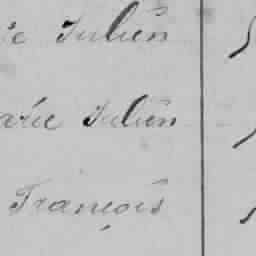 ie Julien
arie Julien
François